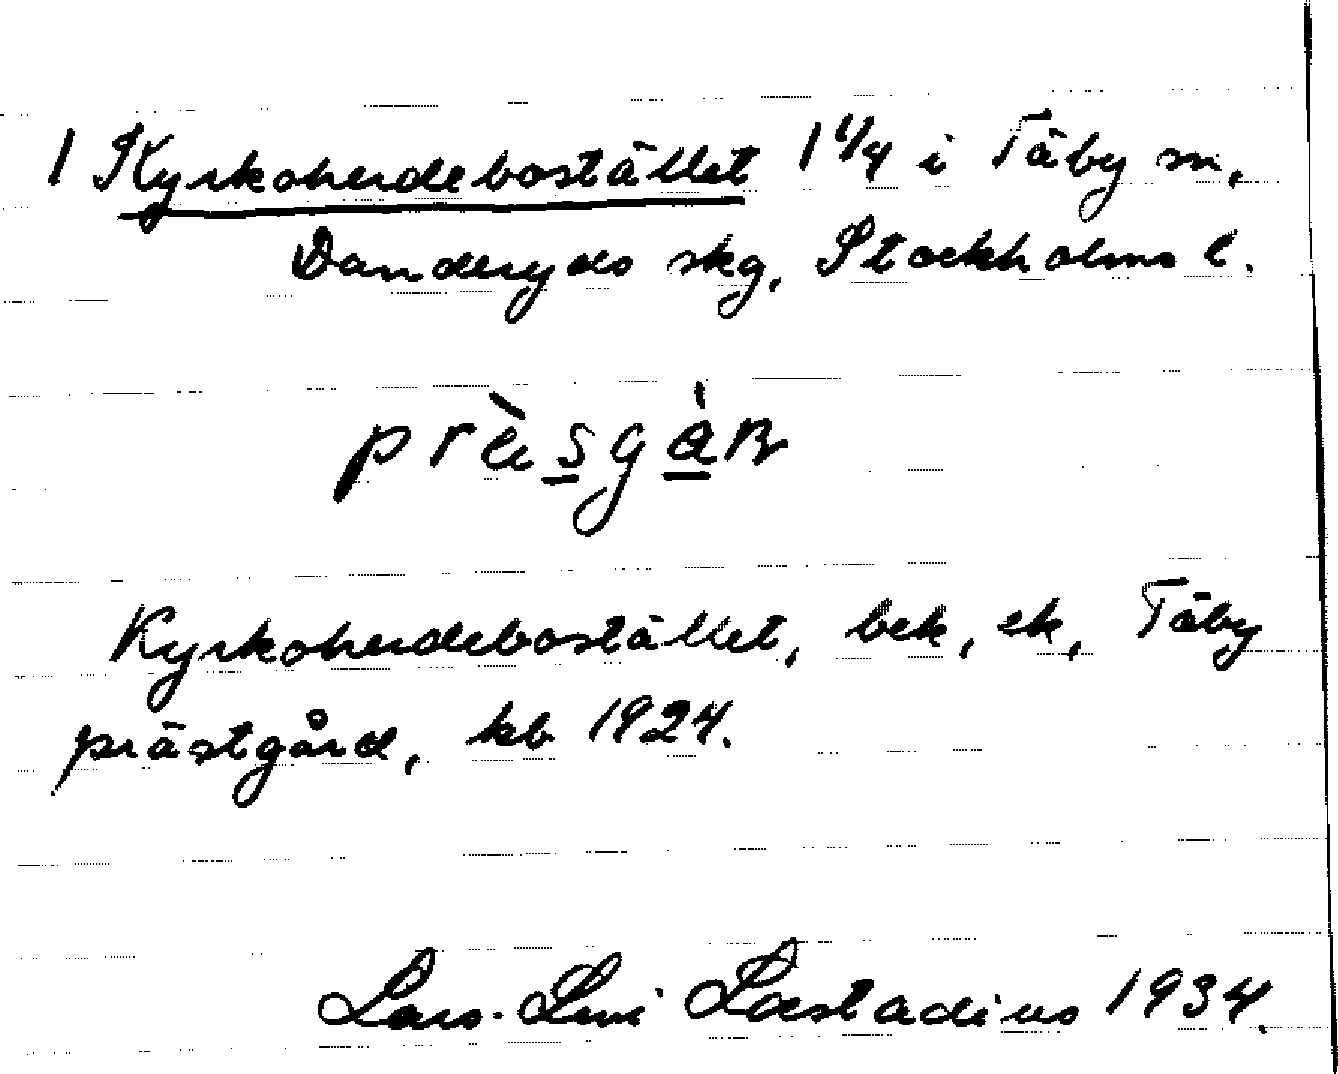 1 Kyrkoherdebostället 1 1/4 i Täby sn,
Danderyds skg, Stockholms l.
prä̀sgàṉ
Kyrkoherdebostället, bek, ek, Täby
prästgård, kb 1924.
Lars-Levi Læstadius 1934.